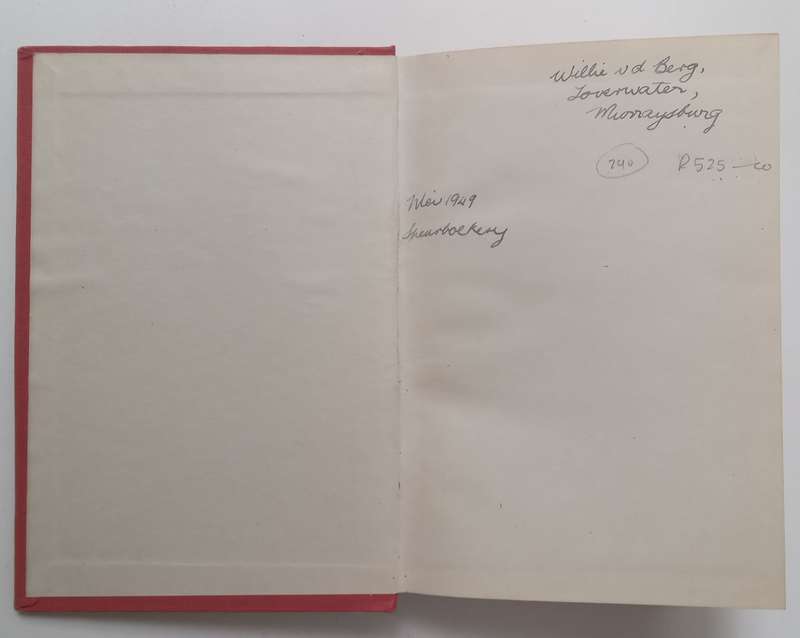 Willie v d Berg,
Toverwater,
Murraysburg
240 R525—00
Nov 1949
Speurboekery